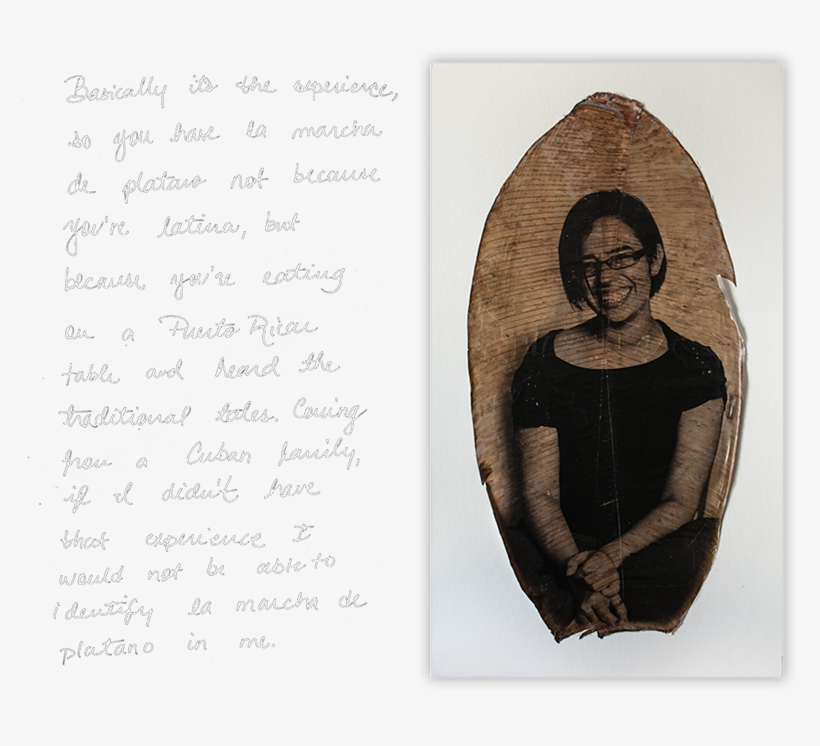 Basically it's the experience,
so you have la mancha
de platano not because
you're latina, but
because you're eating
on a Puerto Rican
table and heard the
traditional tales. Coming
from a Cuban family,
if I didn't have
that experience I
would not be able to
identify la mancha de
platano in me.